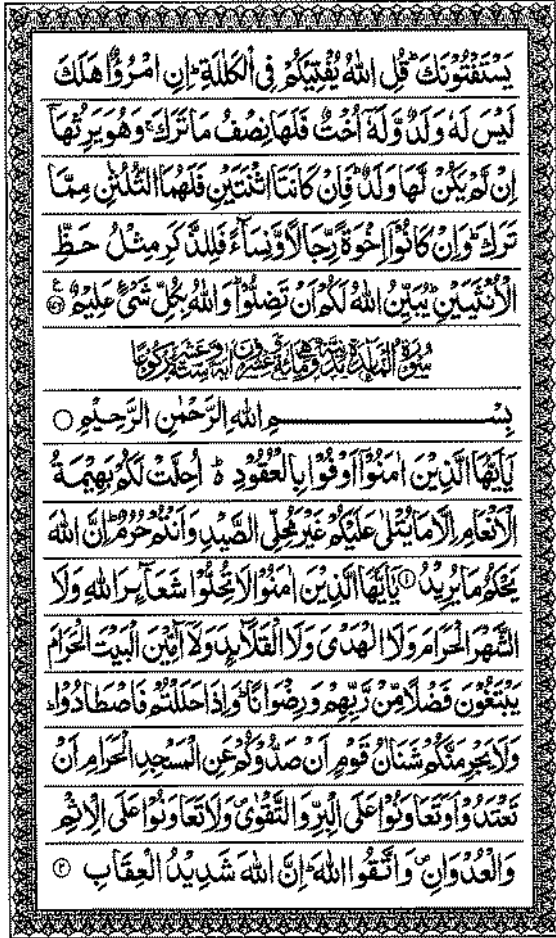 يَسْتَفْتُوْنَكَ ؕ قُلِ اللّٰهُ يُفْتِيْكُمْ فِي الْكَلٰلَةِ ؕ اِنِ امْرُؤٌا هَلَكَ
لَيْسَ لَهٗ وَلَدٌ وَّلَهٗۤ اُخْتٌ فَلَهَا نِصْفُ مَا تَرَكَ ۚ وَهُوَ يَرِثُهَاۤ
اِنْ لَّمْ يَكُنْ لَّهَا وَلَدٌ ؕ فَاِنْ كَانَتَا اثْنَتَيْنِ فَلَهُمَا الثُّلُثٰنِ مِمَّا
تَرَكَ ؕ وَاِنْ كَانُوْۤا اِخْوَةً رِّجَالًا وَّنِسَآءً فَلِلذَّكَرِ مِثْلُ حَظِّ
الْاُنْثَيَيْنِ ؕ يُبَيِّنُ اللّٰهُ لَكُمْ اَنْ تَضِلُّوْا ؕ وَاللّٰهُ بِكُلِّ شَيْءٍ عَلِيْمٌ ۧ ۝۱۷۶
سُوْرَةُ الْمَآئِدَةِ مَدَنِيَّةٌ وَّهِيَ مِائَةٌ وَّعِشْرُوْنَ اٰيَةً وَّسِتَّةَ عَشَرَ رُكُوْعًا
بِسْمِ اللّٰهِ الرَّحْمٰنِ الرَّحِيْمِ ۝
يٰۤاَيُّهَا الَّذِيْنَ اٰمَنُوْۤا اَوْفُوْا بِالْعُقُوْدِ ؕ اُحِلَّتْ لَكُمْ بَهِيْمَةُ
الْاَنْعَامِ اِلَّا مَا يُتْلٰى عَلَيْكُمْ غَيْرَ مُحِلِّي الصَّيْدِ وَاَنْتُمْ حُرُمٌ ؕ اِنَّ اللّٰهَ
يَحْكُمُ مَا يُرِيْدُ ۝۱ يٰۤاَيُّهَا الَّذِيْنَ اٰمَنُوْا لَا تُحِلُّوْا شَعَآئِرَ اللّٰهِ وَلَا
الشَّهْرَ الْحَرَامَ وَلَا الْهَدْيَ وَلَا الْقَلَآئِدَ وَلَاۤ اٰمِّيْنَ الْبَيْتَ الْحَرَامَ
يَبْتَغُوْنَ فَضْلًا مِّنْ رَّبِّهِمْ وَرِضْوَانًا ؕ وَاِذَا حَلَلْتُمْ فَاصْطَادُوْا ؕ
وَلَا يَجْرِمَنَّكُمْ شَنَاٰنُ قَوْمٍ اَنْ صَدُّوْكُمْ عَنِ الْمَسْجِدِ الْحَرَامِ اَنْ
تَعْتَدُوْا ۘ وَتَعَاوَنُوْا عَلَى الْبِرِّ وَالتَّقْوٰى ۪ وَلَا تَعَاوَنُوْا عَلَى الْاِثْمِ
وَالْعُدْوَانِ ۪ وَاتَّقُوا اللّٰهَ ؕ اِنَّ اللّٰهَ شَدِيْدُ الْعِقَابِ ۝۲